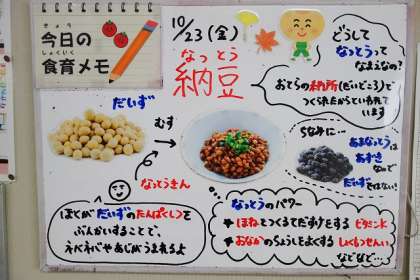 きょう
今日の
しょくいく
食育メモ
10/23(金)
なっとう
納豆
どうして
なっとうって
なまえなの?
おてらの納所(だいどころ)で
つくられたからといわれて
います
だいず
むす
なっとうきん
ぼくが だいずのたんぱくしつを
ぶんかいすることで、
ネバネバやあじがうまれるよ
ちなみに…
あまなっとうは
あずき なので
だいずではない!
なっとうのパワー
★ほねをつくるてだすけをする ビタミンK
★おなかのちょうしをよくする しょくもつせんい
などなど…